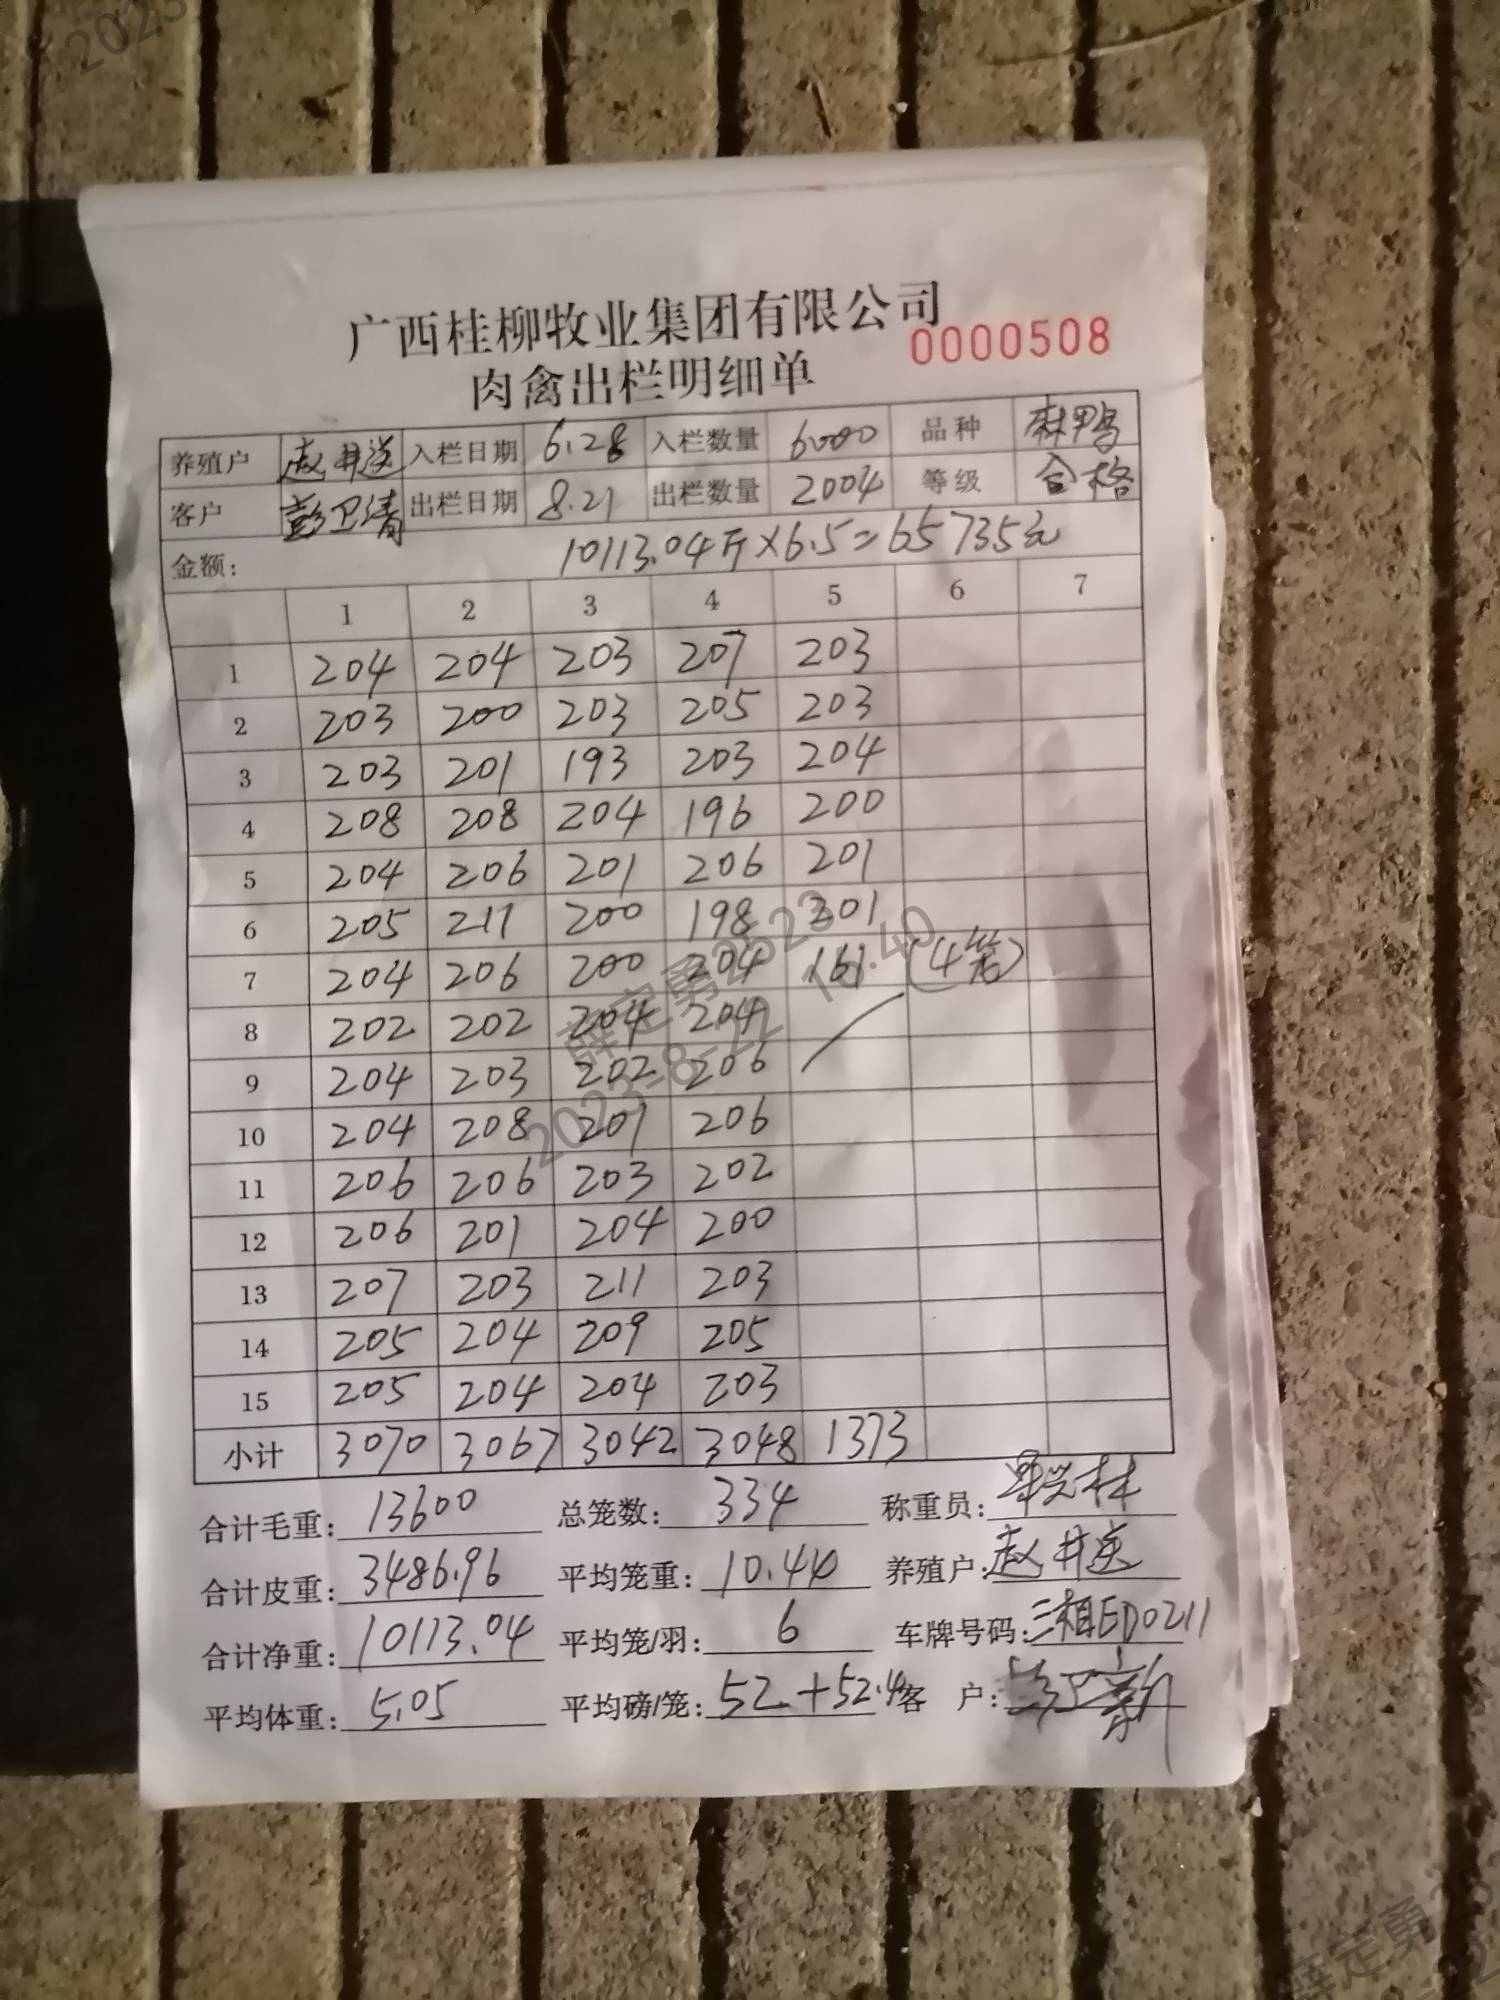 广西桂柳牧业集团有限公司
0000508
肉禽出栏明细单
养殖户 赵井送 入栏日期 6.28 入栏数量 6000 品种 麻鸭
客户 彭卫清 出栏日期 8.21 出栏数量 2004 等级 合格
金额: 10113.04斤×6.5=65735元
1 2 3 4 5 6 7
1 204 204 203 207 203
2 203 200 203 205 203
3 203 201 193 203 204
4 208 208 204 196 200
5 204 206 201 206 201
6 205 211 200 198 201
7 204 206 200 204 161 (4笼)
8 202 202 204 204
9 204 203 202 206
10 204 208 201 206
11 206 206 203 202
12 206 201 204 200
13 207 203 211 203
14 205 204 209 205
15 205 204 204 203
小计 3070 3067 3042 3048 1373
合计毛重: 13600 总笼数: 334 称重员:
合计皮重: 3486.96 平均笼重: 10.44 养殖户: 赵井送
合计净重: 10113.04 平均笼/羽: 6 车牌号码: 湘ED0211
平均体重: 5.05 平均磅/笼: 52+52.4 客 户:
薛定勇2523
2023-8-22 16:40